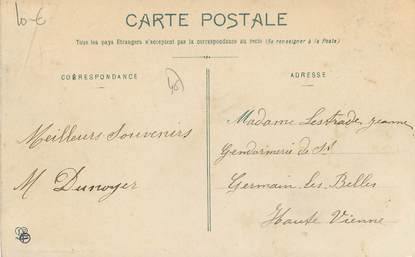 10-€
CARTE POSTALE
Tous les pays Etrangers n'acceptent pas la correspondance au recto (Se renseigner à la Poste)
CORRESPONDANCE
ADRESSE
Meilleurs Souvenirs
M Dunoyer
Madame Lestrade Jeanne
Gendarmerie de St
Germain les Belles
Haute Vienne